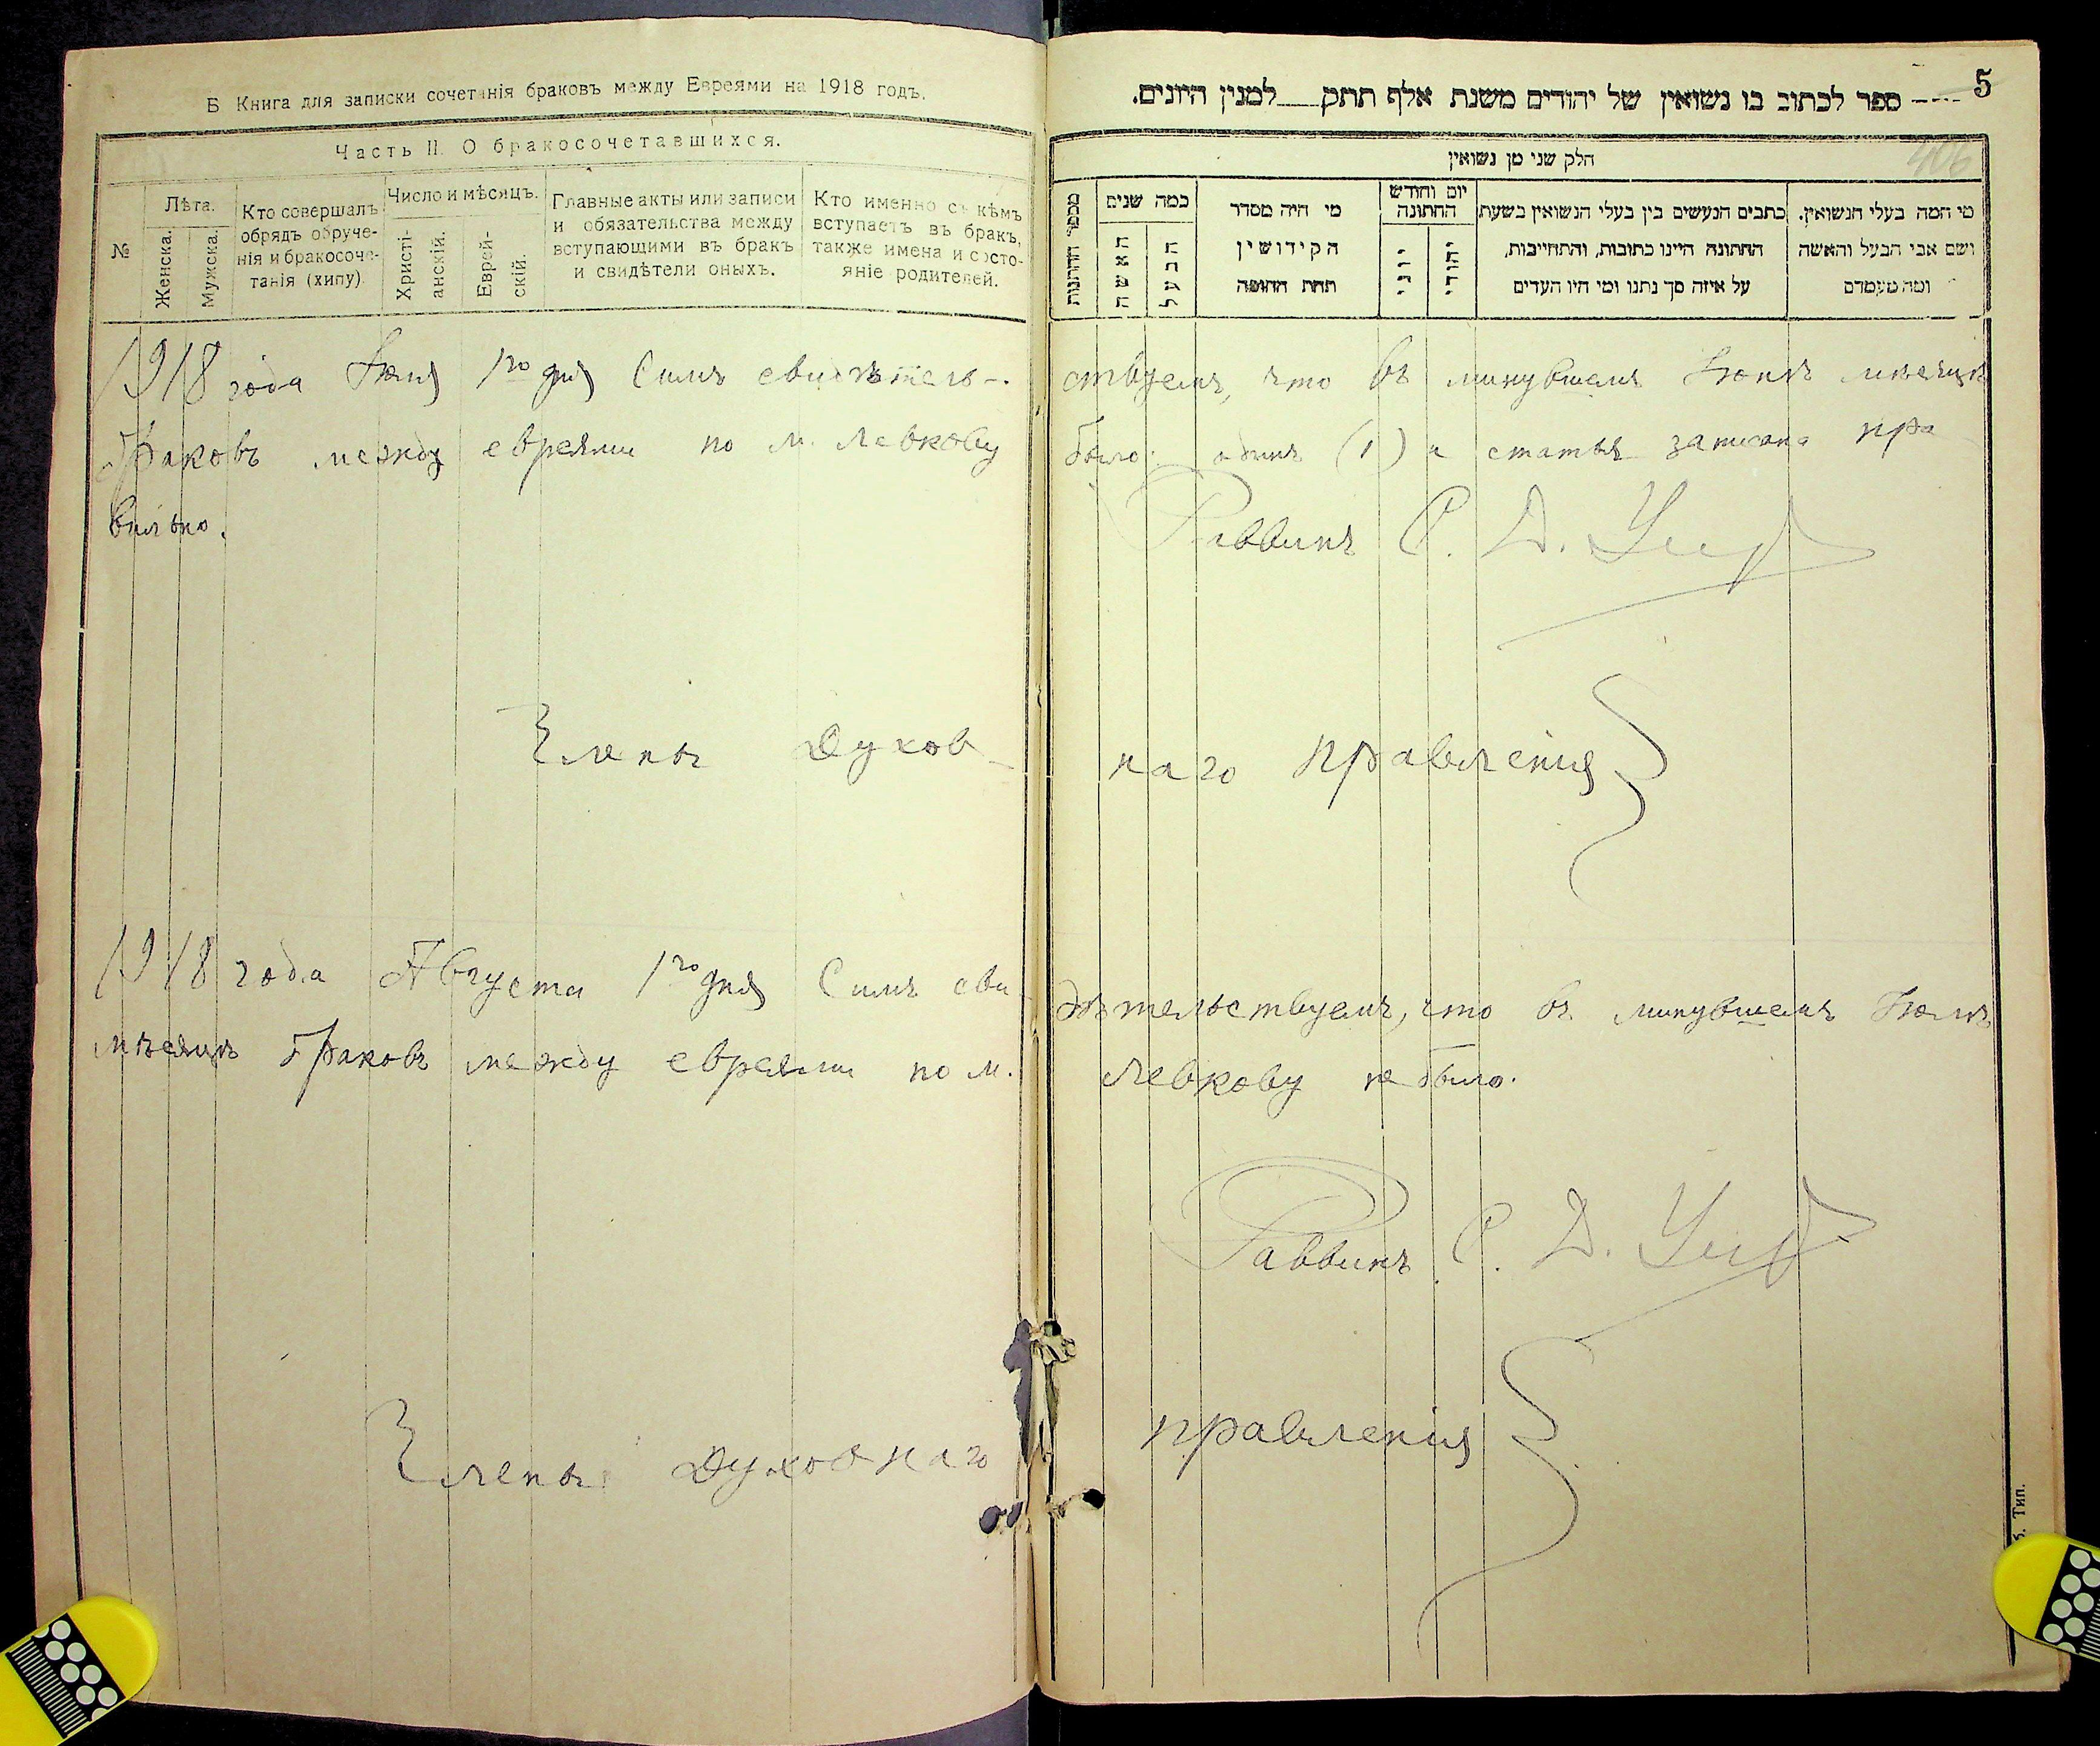 Б Книга для записки сочетанія браковъ между Евреями на 1918 годъ.
Часть II. О бракосочетавшихся.
№
Лѣта.
Женска.
Мужска.
Кто совершалъ
обрядъ обруче-
нія и бракосоче-
танія (хипу)
Число и мѣсяцъ.
Христі-
анскій.
Еврей-
скій.
Главные акты или записи
и обязательства между
вступающими въ бракъ
и свидѣтели оныхъ.
Кто именно съ кѣмъ
вступаетъ въ бракъ,
также имена и состо-
яніе родителей.
5
ספר לכתוב בו נשואין של יהודים משנת אלף תתק למנין היונים.
406
חלק שני מן נשואין
מספר החתונות
כמה שנים
האשה
הבעל
מי היה מסדר
הקידושין
תחת החופה
יום וחודש
החתונה
יוני
יהודי
כתבים הנעשים בין בעלי הנשואין בשעת
החתונה היינו כתובות, והתחייבות,
על איזה סך נתנו ומי היו העדים
מי המה בעלי הנשואין.
ושם אבי הבעל והאשה
ומה מעמדם
1918 года Іюля 1го дня Симъ свидѣтель- ствуемъ, что въ минувшемъ Іюнѣ мѣсяцѣ
браковъ между евреями по м. Левкову было: одинъ (1) и статья записана пра
вильно.
Раввинъ С. Д.
Члены Духов- наго правленія
1918 года Августа 1го дня Симъ сви- дѣтельствуемъ, что въ минувшемъ Іюлѣ
мѣсяцѣ браковъ между евреями по м. Левкову не было.
Раввинъ С. Д.
Члены Духовнаго правленія
Тип.